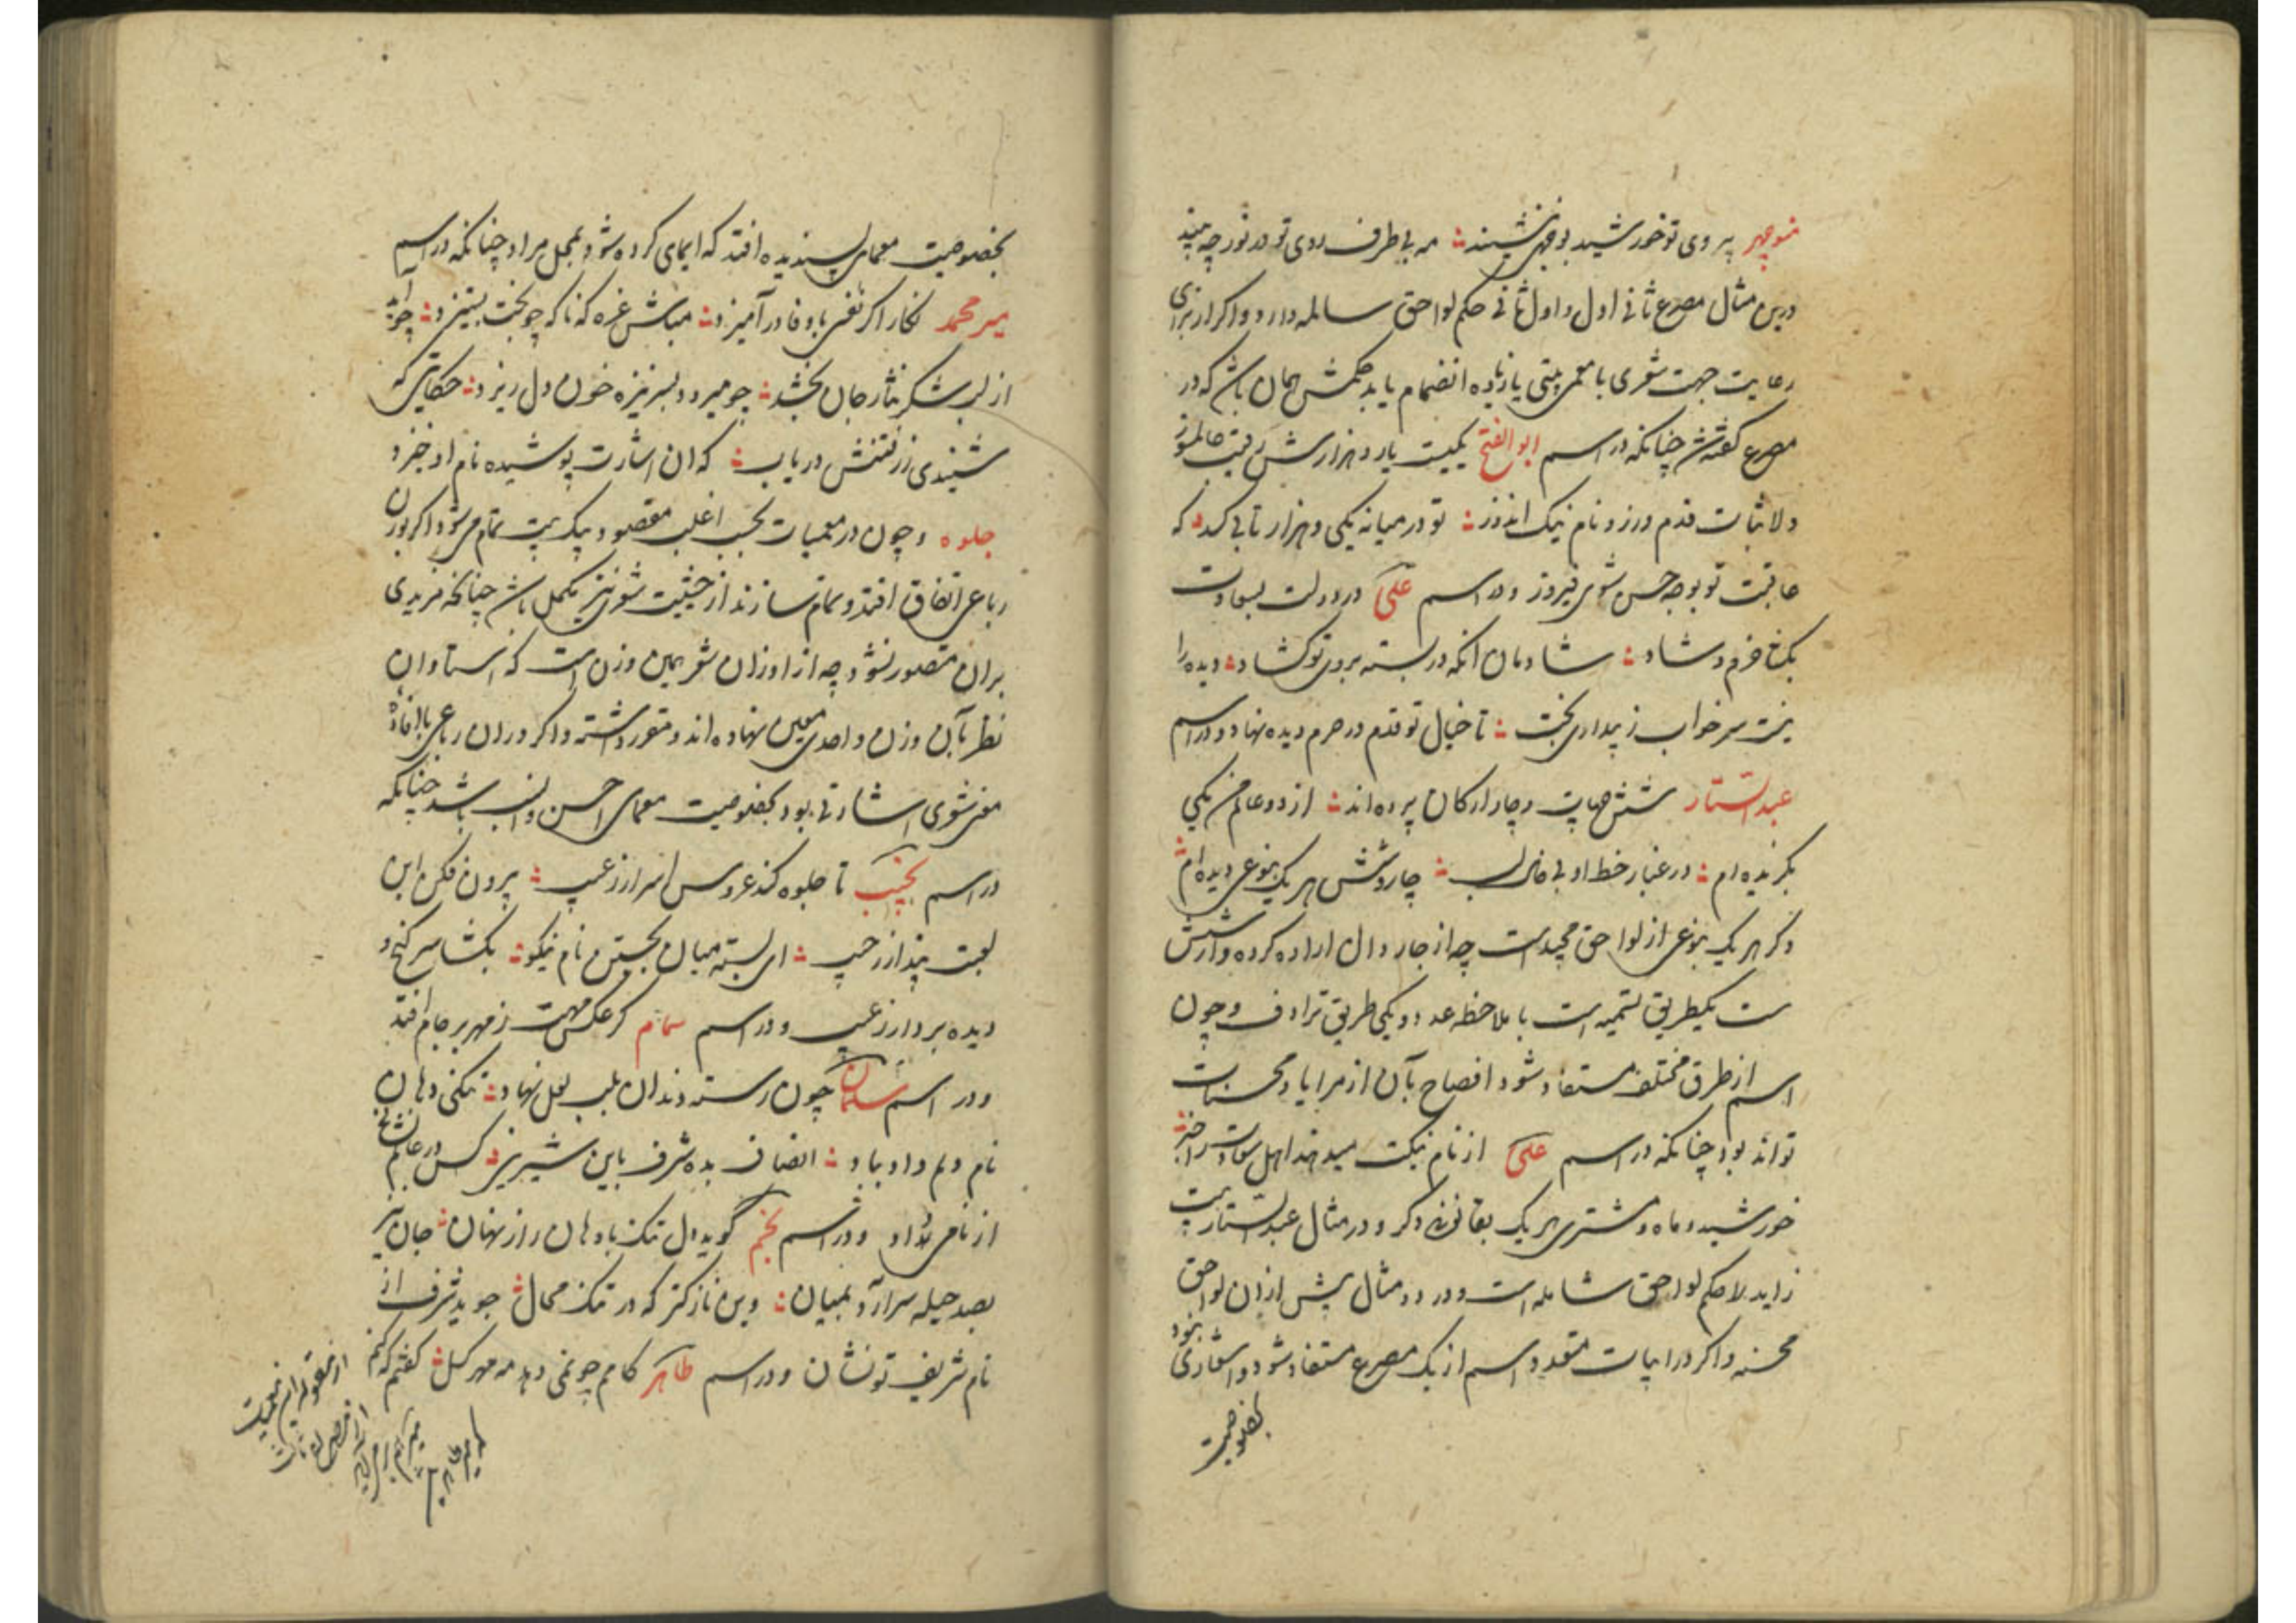 منوچهر پیروی تو خورشید بوجهی ننشیند مه بی طرف روی تو در نور چه بیند
درین مثال مصرع ثانی اول و اول ثانی حکم لواحق سالمه دارد و اگر از برای
رعایت جهت شعری با معمی بیتی یا زیاده انضمام یابد حکمش همان باشد که در
مصرع گفته شد چنانکه در اسم ابو الفتح یکیست یار و هزارش رقیب عالم سوز
دلا ثبات قدم ورز و نام نیک اندوز تو در میانه یکی و هزار تابی کرد که
عاقبت تو بوجه حسن شوی فیروز و در اسم علی در دولت بسعادت
بکشا خرم و شاد شادمان آنکه در بسته بروی تو کشاد دیده را
نیست سر خواب ز بیداری بخت تا خیال تو قدم در حرم دیده نهاد و در اسم
عبد الستار شش جهات و چار ارکان پرده اند از دو عالم من یکی
بگزیده ام در غبار خط او بی خال لب چار و شش هر یک بنوعی دیده ام
ذکر هر یک بنوعی از لواحق مجیدست چه از چار دال اراده کرده و از شش
ست یکطریق تسمیه است با ملاحظه عدد و یکی طریق ترادف و چون
اسم از طرق مختلفه مستفاد شود افصاح بآن از مزایا و محسنات
تواند بود چنانکه در اسم علی از نام نیکت میدهند اهل سعادت را خبر
خورشید و ماه و مشتری هر یک بقانون دگر و در مثال عبد الستار بیت
زاید را حکم لواحق شامله است و در دو مثال پیش ازان لواحق
محسنه و اگر در ابیات متعدد اسم از یک مصرع مستفاد شود و اشعاری نبود
بخصوصیت
بخصوصیت معمای پسندیده افتد که ایمای کرده شود بمحل مراد چنانکه در اسم
میر محمد نگار اگر نفسی با وفا در آمیزد مباش غره که ناگه چو بخت بستیزد چو
از لب شکر نثار جان بخشد چو میرود بسر نیزه خون دل ریزد حکایتی که
شنیدی ز رفتنش دریاب که ان اشارت پوشیده نام او خیزد
جلوه و چون در معمیات بحسب اغلب مقصود بیک بیت تمام می شود اگر بوزن
رباعی اتفاق افتد و تمام سازند از حیثیت شعری نیز مکمل باشد چنانکه مزیدی
بران متصور نشود چه از اوزان شعر همین وزن است که استادان
نظر بآن وزن واحدی معین نهاده اند و مقرر داشته و اگر دران رباعی با افاده
معنی شعری اشارتی بود بخصوصیت معمای احسن و انسب باشد چنانکه
در اسم نجیب تا جلوه کند عروس اسرار ز غیب بیرون فکن این
لعبت پندار ز جیب ای بسته میان بجستن نام نیکو بکشا سر گنج و
دیده بردار ز غیب و در اسم سام گر عکس مهت ز مهر بر جام افتد
و در اسم سلمان چون رسته دندان بلب لعل نهاد تنگی دهان
نام دلم داد بباد انصاف بده شرف باین شیرینی کس در عالم نشان
از نامی نداد و در اسم نجم گوید دل تنگ با دهان راز نهان جان نیز
بصد حیله سرآرد بمیان وین نازکتر که در تنگ محال جوید شرف از
نام شریف تو نشان و در اسم طاهر کامم چو نمی دهد مه مهر گسل گفتم که کنم